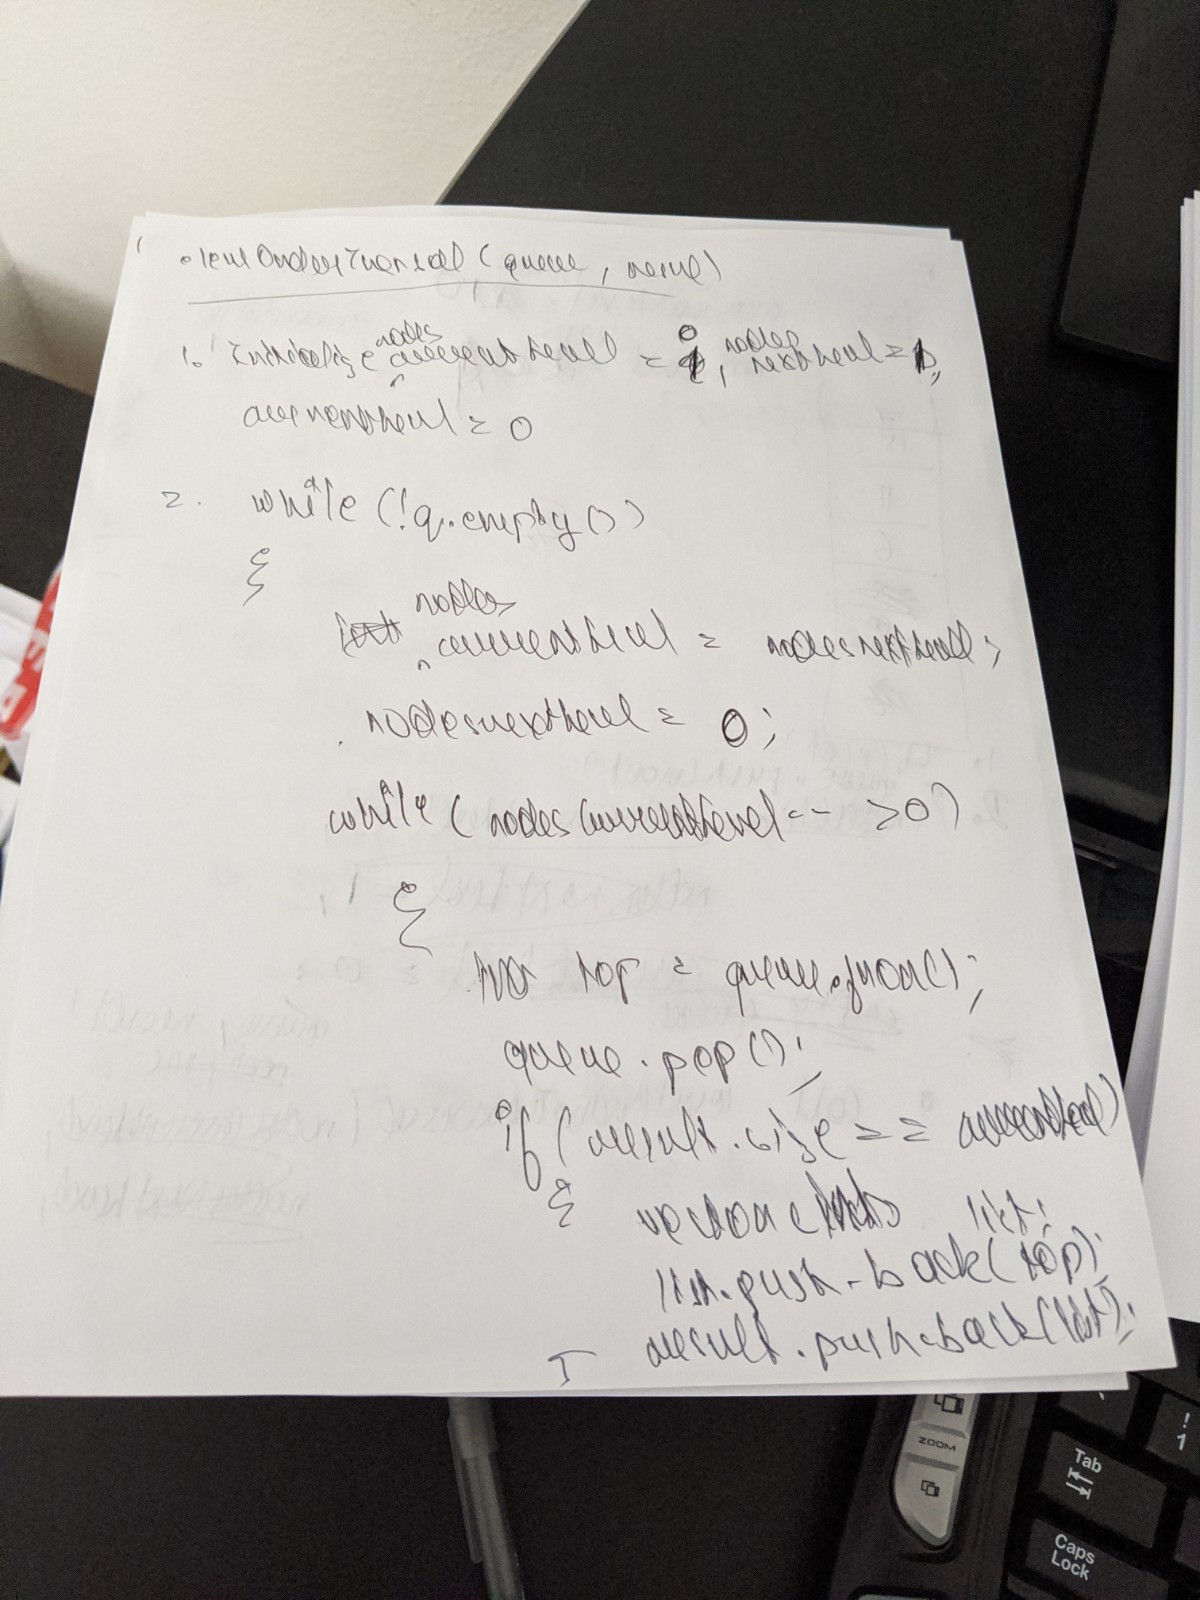 • levelOrderTraversal (queue, result)
1. Initialize nodes currentlevel = 0, nodes nextlevel = 1,
currentlevel = 0
2. while (!q.empty())
{
nodes currentlevel = nodesnextlevel;
nodesnextlevel = 0;
while (nodes currentlevel-- >0)
{
top = queue.front();
queue.pop();
if (result.size == currentlevel)
{ vector list;
list.push-back(top);
} result.push-back(list);
ZOOM
Tab
!
1
Caps
Lock